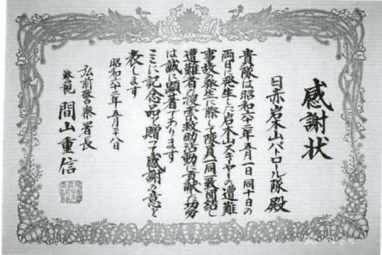 感謝状
日赤岩木山パトロール隊殿
貴隊は昭和六二年五月一日同十日の
両日発生した岩木山スキーヤーの遭難
事故発生に際して隊員一同一致団結し
遭難者の捜索救助活動に貢献した功労
は誠に顕著であります
ここに記念品を贈って感謝の意を
表します
昭和六十二年五月二八日
弘前警察署長
警視 間山重信